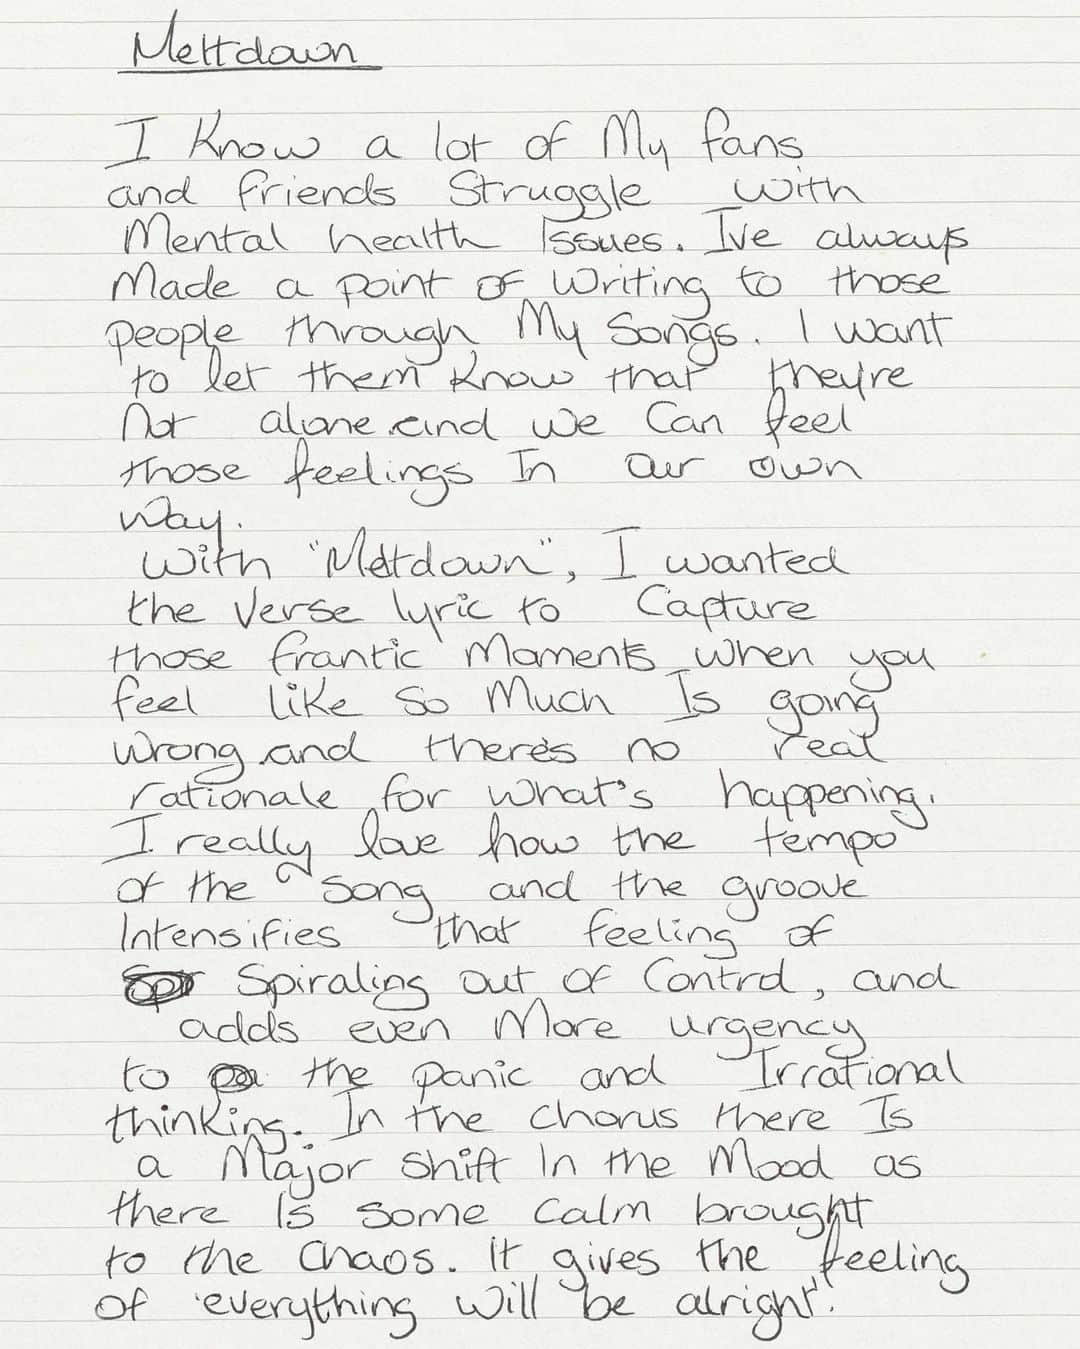 Meltdown
I Know a lot of My fans
and friends Struggle with
Mental health Issues. Ive always
Made a point of Writing to those
people through My Songs. I want
to let them Know that they're
Not alone and we Can feel
those feelings In our own
Way.
With "Meltdown", I wanted
the Verse lyric to Capture
those frantic Moments when you
feel like So Much Is going
wrong and there's no real
rationale for what's happening.
I really love how the tempo
of the Song and the groove
Intensifies that feeling of
Spiraling out of Control, and
adds even More urgency
to the panic and Irrational
thinking. In the Chorus there Is
a Major Shift In the Mood as
there Is some Calm brought
to the Chaos. It gives the feeling
of 'everything will be alright'.